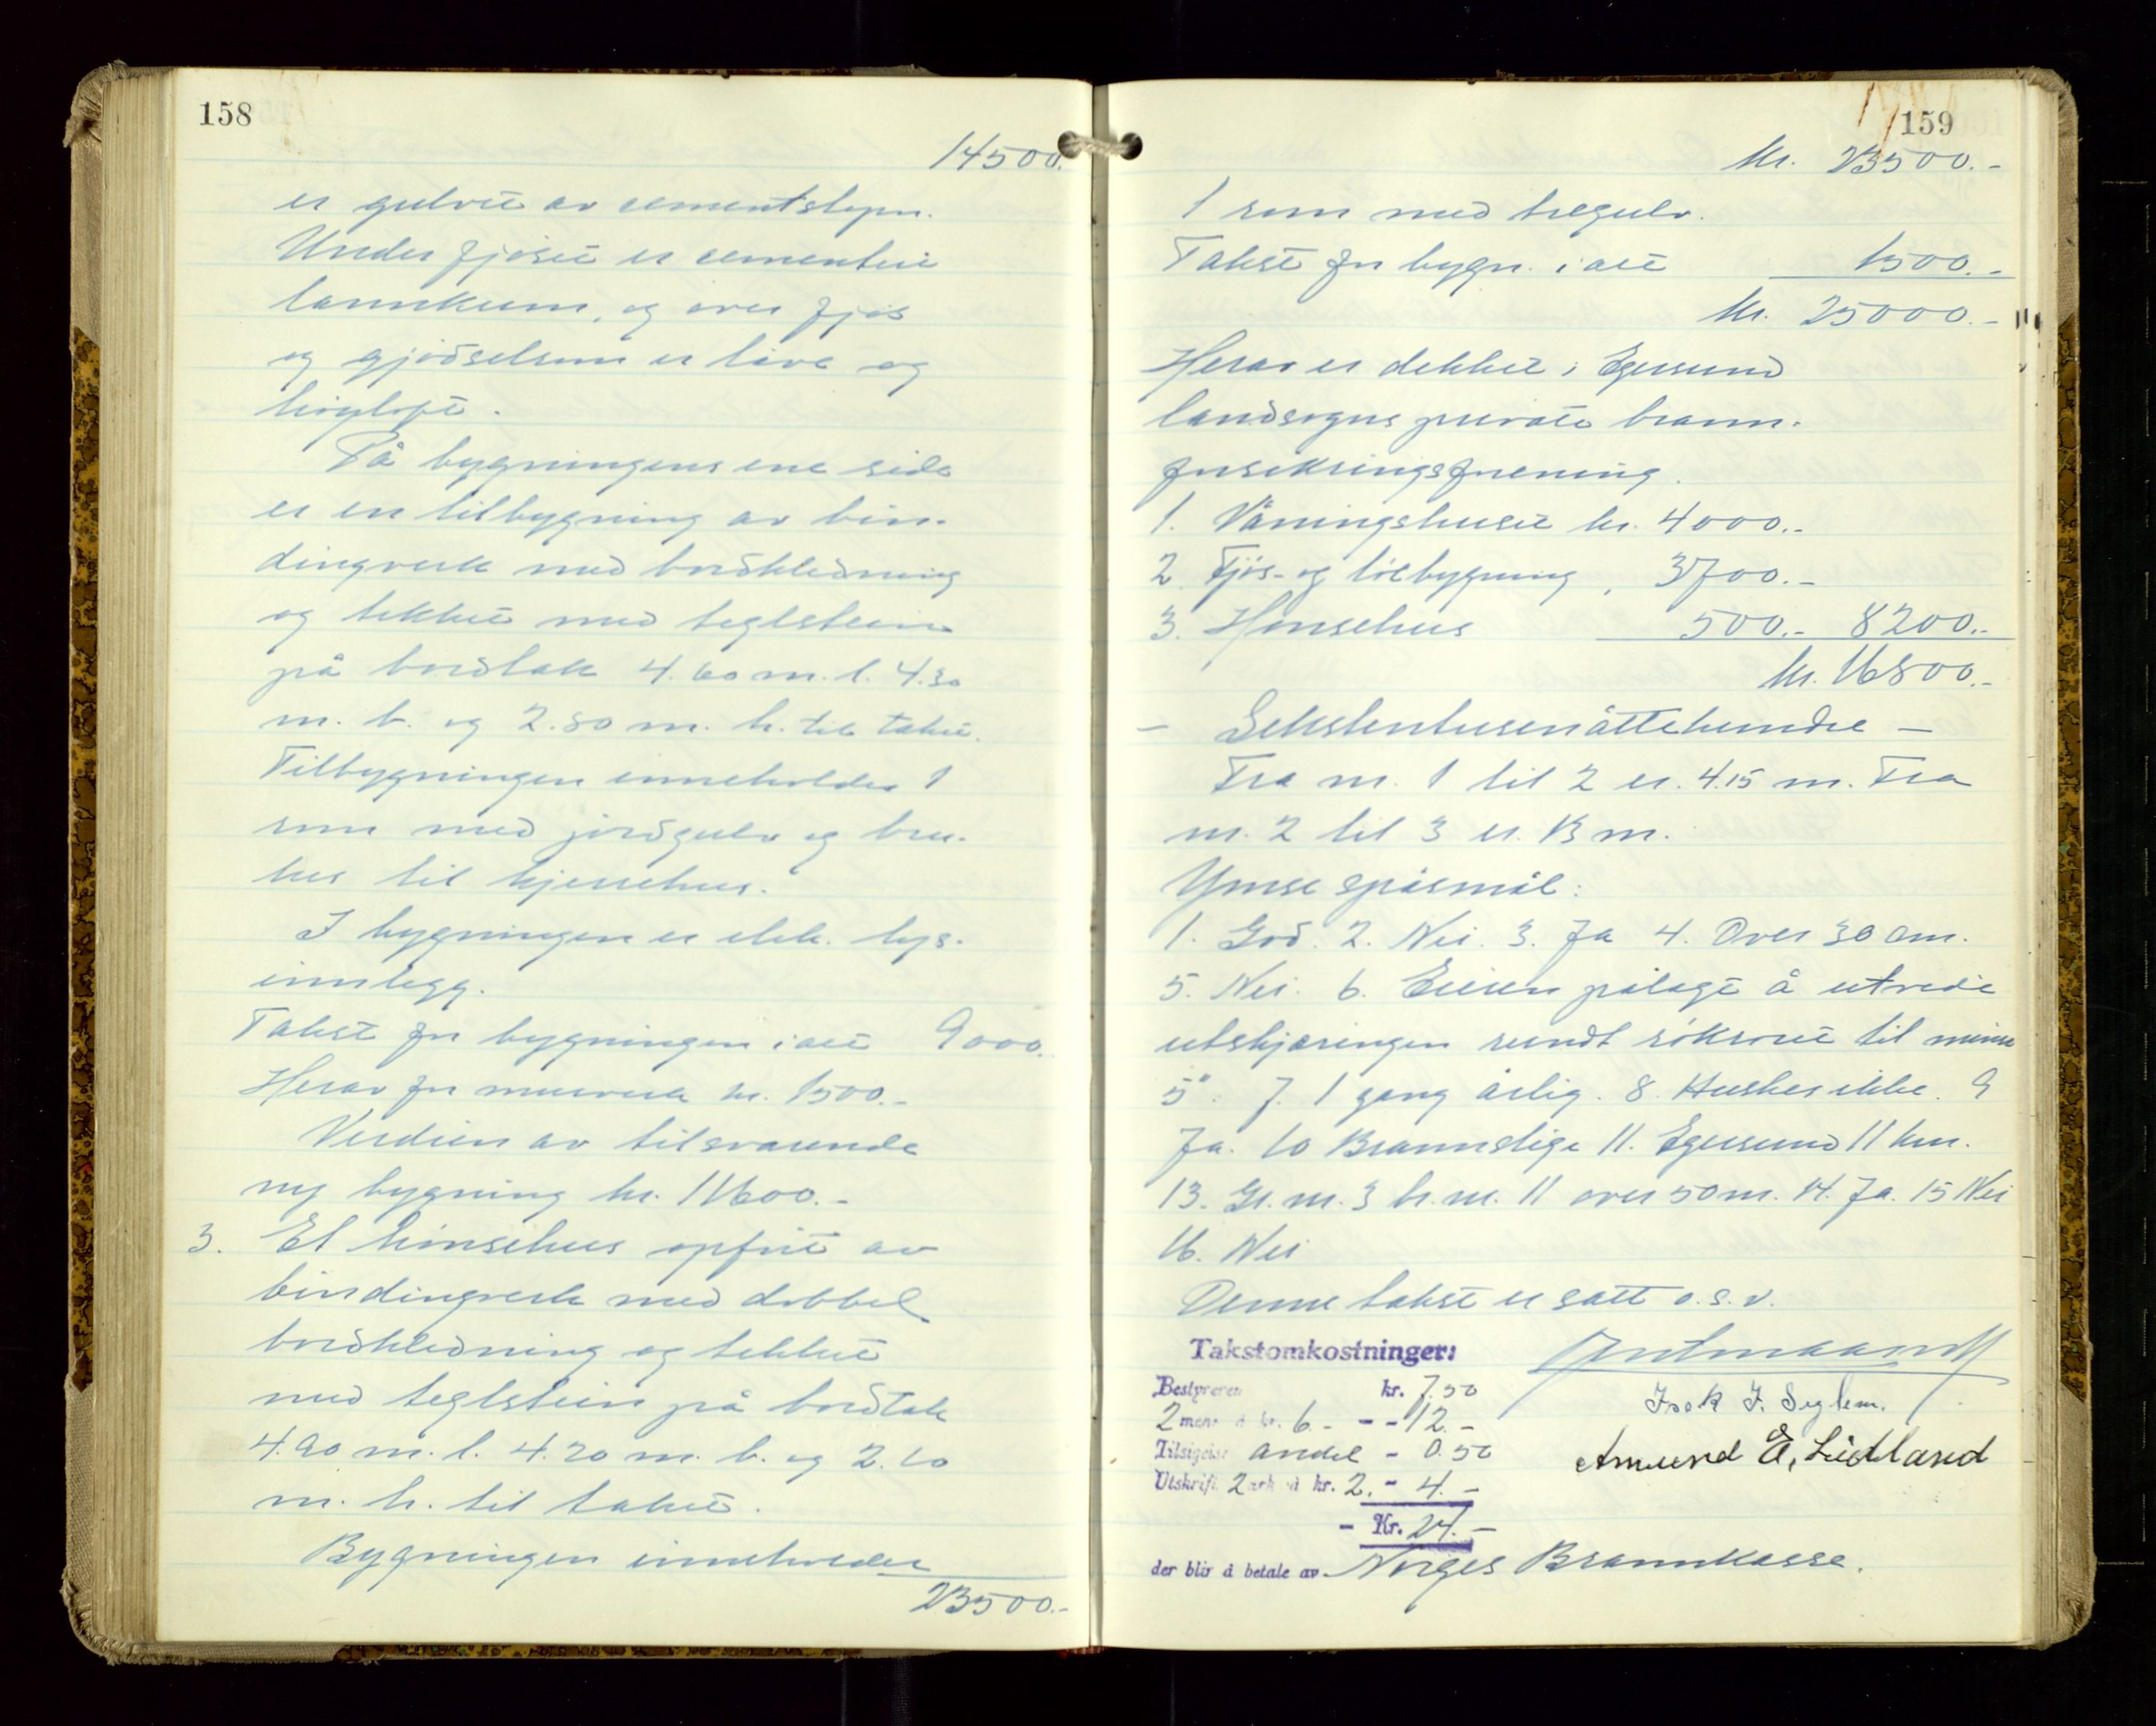 158
14500.
er gulvet av cementstøpn.
Under fjøset er cementert
lannkum, og over fjøs
og gjødselrum er låve og
høyloft.
På bygningens ene side
er en tilbygning av bin-
dingverk med bordkledning
og tekket med teglstein
på bordtak 4.60 m. l. 4.30
m. b. og 2.80 m. h. til taket.
Tilbygningen inneholder 1
rum med jordgulv og bru-
kes til kjerrehus.
I bygningen er elek. lys-
innlegg.
Takst for bygningen i alt 9000.
Herav for murverk kr. 1500.-
Verdien av tilsvarende
ny bygning kr. 11600.-
3. Et hønsehus opført av
bindingverk med dobbel
bordkledning og tekket
med teglstein på bordtak
4.90 m. l. 4.20 m. b. og 2.10
m. h. til taket.
Bygningen inneholder
23500.-
159
Kr. 23500.-
1 rum med tregulv.
Takst for bygn. i alt 1500.-
Kr. 25000.-
Herav er dekket i Egersund
landsogns private brann-
forsikringsforening.
1. Våningshuset kr. 4000.-
2. Fjøs- og løebygning " 3700.-
3. Hønsehus 500.- 8200.-
Kr. 16800.-
- Sekstentusenåttehundre -
Fra nr. 1 til 2 er 4.15 m. Fra
nr. 2 til 3 er 13 m.
Ymse spåsmål:
1. God. 2. Nei. 3. Ja 4. Over 30 cm.
5. Nei. 6. Eieren pålagt å utvide
utskjæringen rundt rökröret til minst
5". 7. 1 gang årlig. 8. Huskes ikke. 9
Ja. 10 Brannstige 11. Egersund 11 km.
13. Gr. nr. 3 br. nr. 11 over 50 m. 14. Ja. 15 Nei
16. Nei
Denne takst er satt o. s. v.
Takstomkostninger:
Bestyreren kr. 7.50
2 menn à kr. 6.- - - 12.-
Tilsigelse andel - 0.50
Utskrift 2 ark à kr. 2.- 4.-
- Kr. 24.-
Isak I. Seglem.
Amund E. Lidland
der blir å betale av Norges Brannkasse.